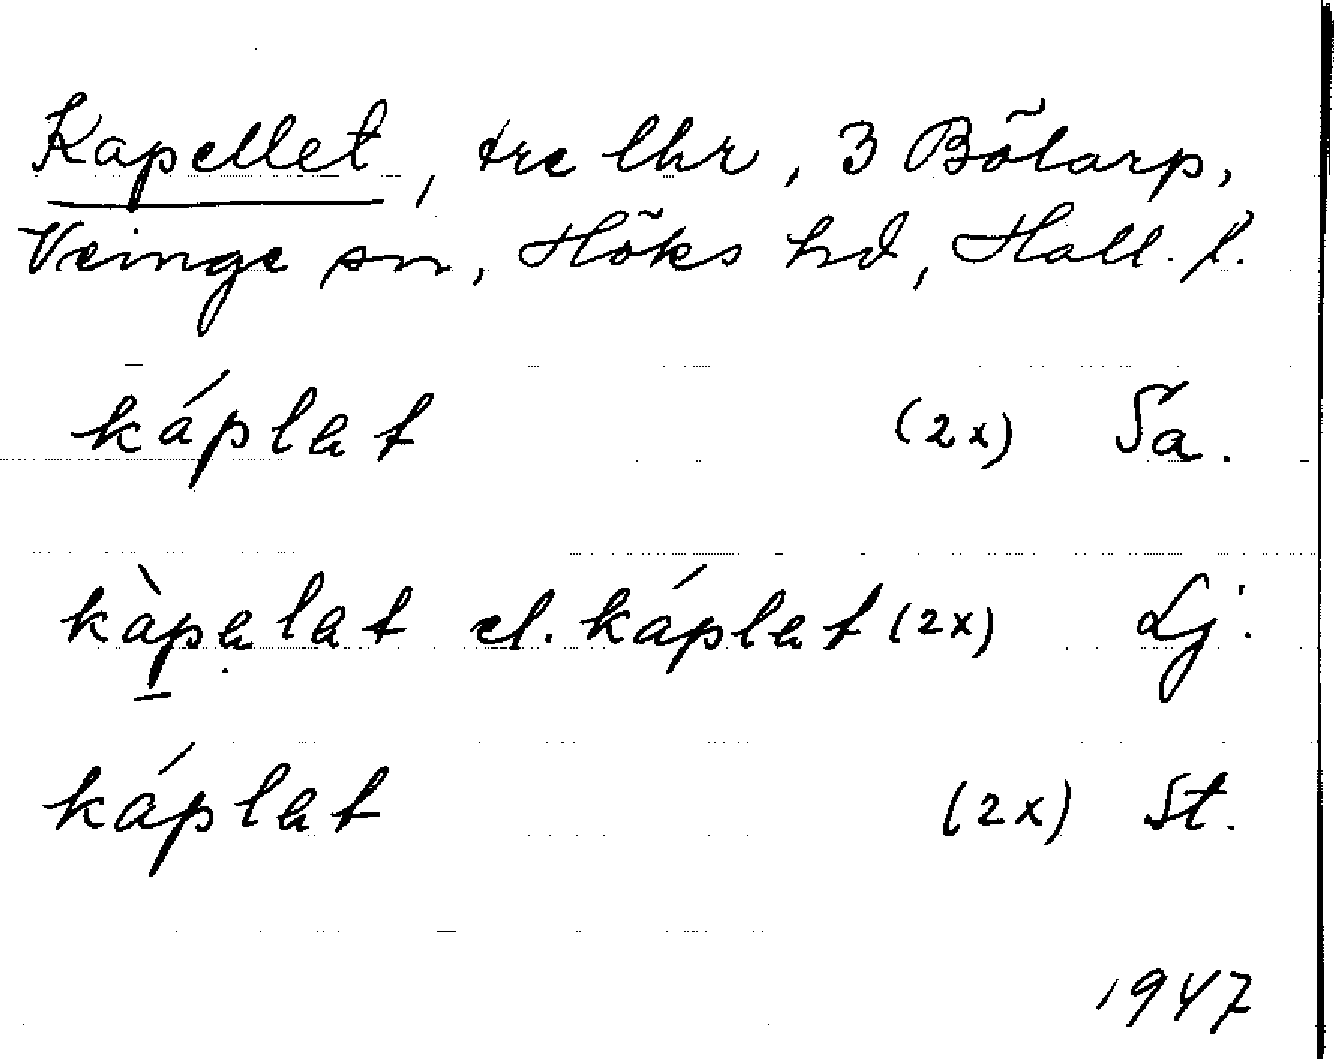 Kapellet, tre lhr, 3 Bölarp,
Veinge sn, Höks hd, Hall. l.
káplat (2x) Sa.
kàpalat el. káplat (2x) Lj.
káplat (2x) St.
1947